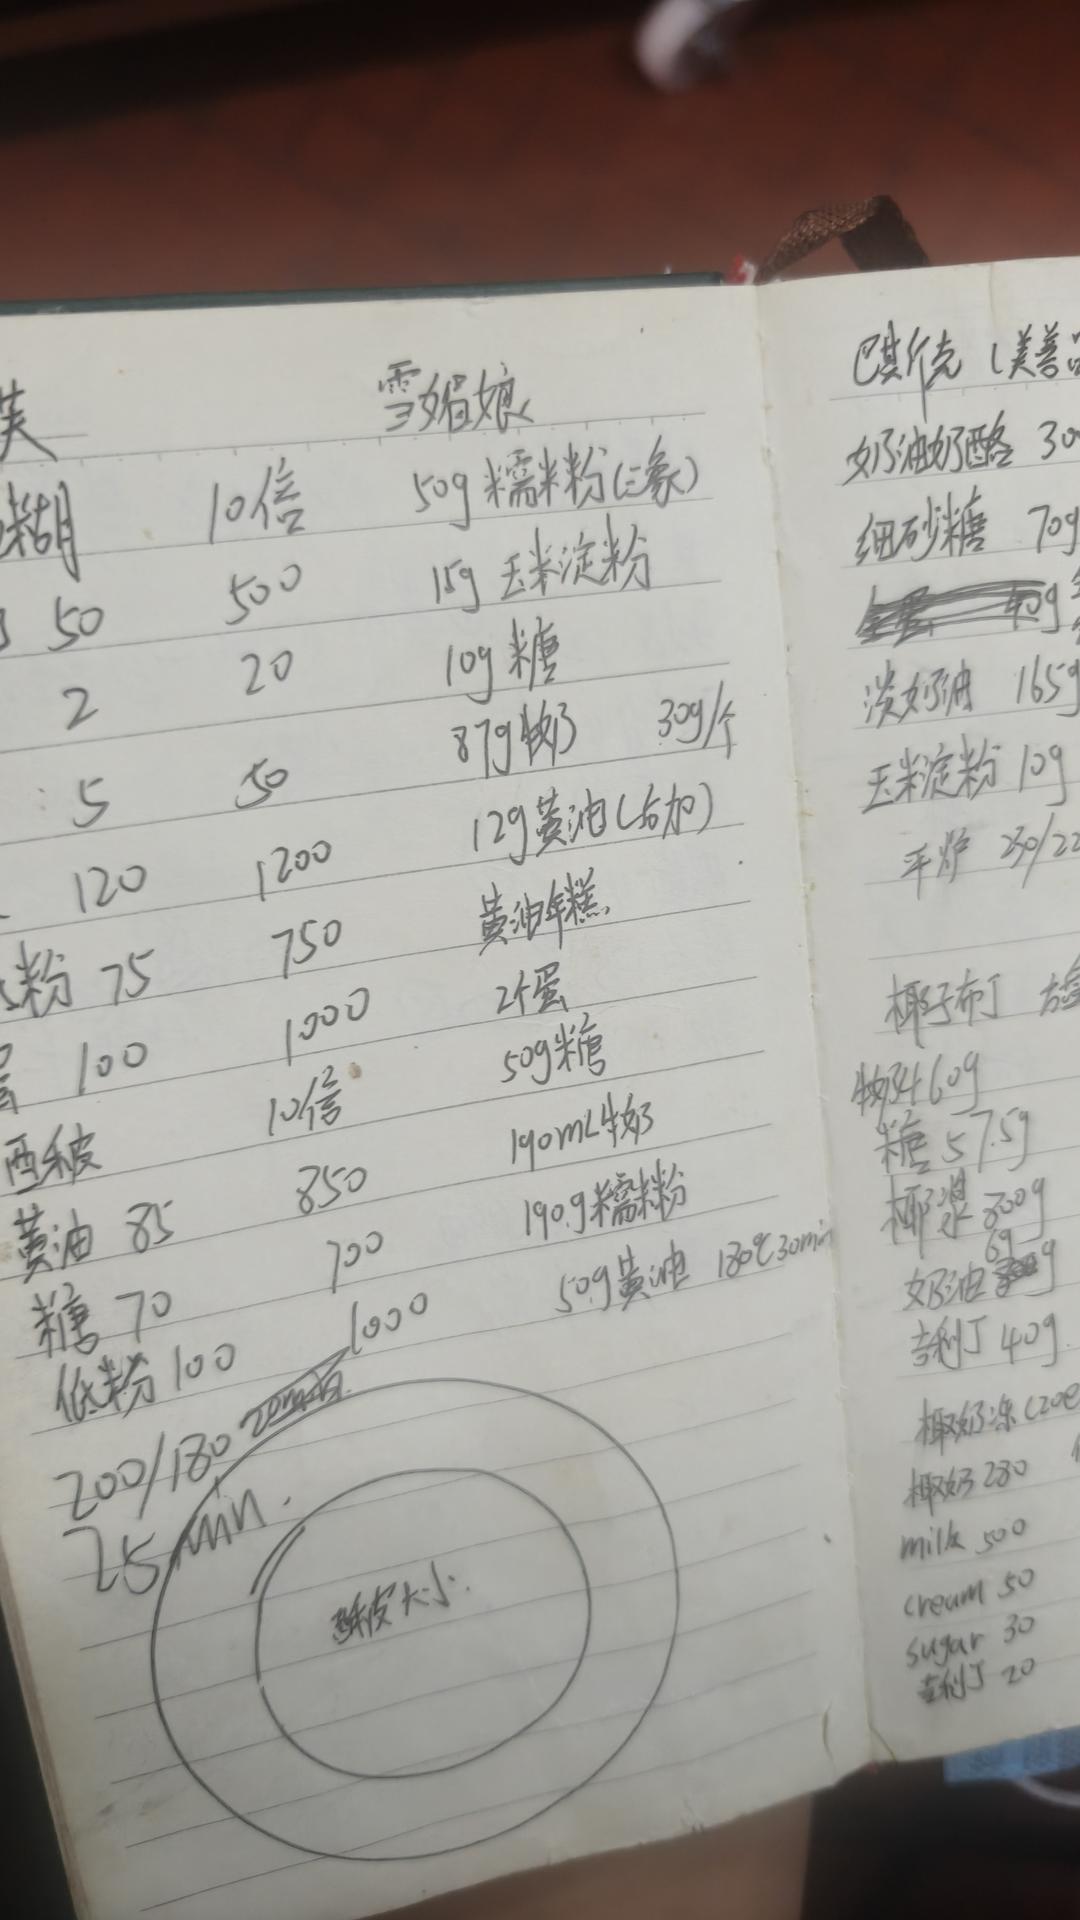 芙
糊 10倍
50 500
2 20
5 50
120 1200
粉 75 750
100 1000
酥皮 10倍
黄油 85 850
糖 70 700
低粉 100 1000
200/180
25min.
酥皮大小
雪媚娘
50g 糯米粉(三象)
15g 玉米淀粉
10g 糖
87g牛奶 30g/个
12g黄油(后加)
黄油年糕
2个蛋
50g糖
190mL牛奶
190g糯米粉
50g黄油 180℃30min
巴斯克 (美善品
奶油奶酪 30
细砂糖 70g
40g
淡奶油 165g
玉米淀粉 10g
平炉 230/22
椰子布丁
牛奶460g
糖 57.5g
椰浆 800g
奶油 69g
吉利丁 40g
椰奶冻(20
椰奶 280
milk 500
cream 50
sugar 30
吉利丁 20